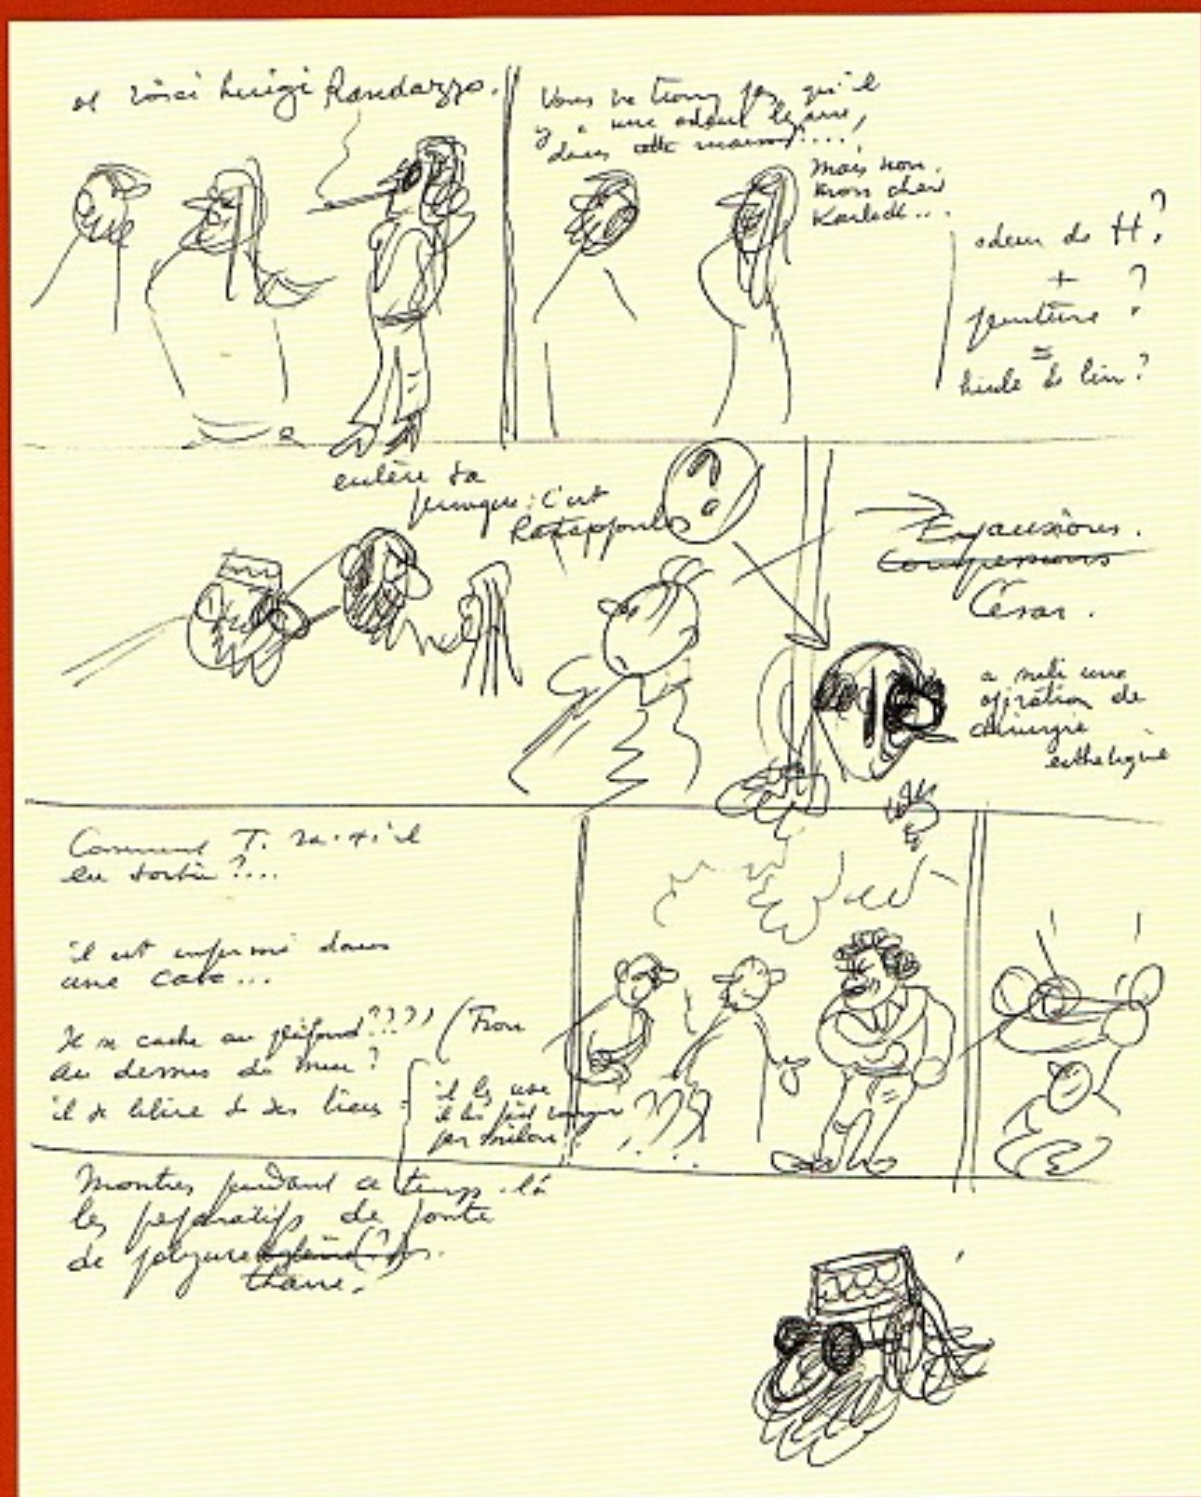 et voici Luigi Randazzo.
Vous ne trouvez pas qu'il
y a une odeur bizarre,
dans cette maison....,
Mais non,
mon cher
Karladec...
odeur de H?
+ ?
peinture ?
=
huile de lin?
enlève sa
perruque: c'est
Rastappopoulos
Expansions.
Compressions
César.
a subi une
opération de
chirurgie
esthétique
Comment T. va-t-il
en sortir?...
il est enfermé dans
une cave...
Il se cache au plafond????
(Trou
au dessus du mur?
il se libère de ses liens
il les use
il les fait ronger
par Milou!
????
Montrer pendant ce temps-là
les préparatifs de fonte
de polyure (?)
thane.